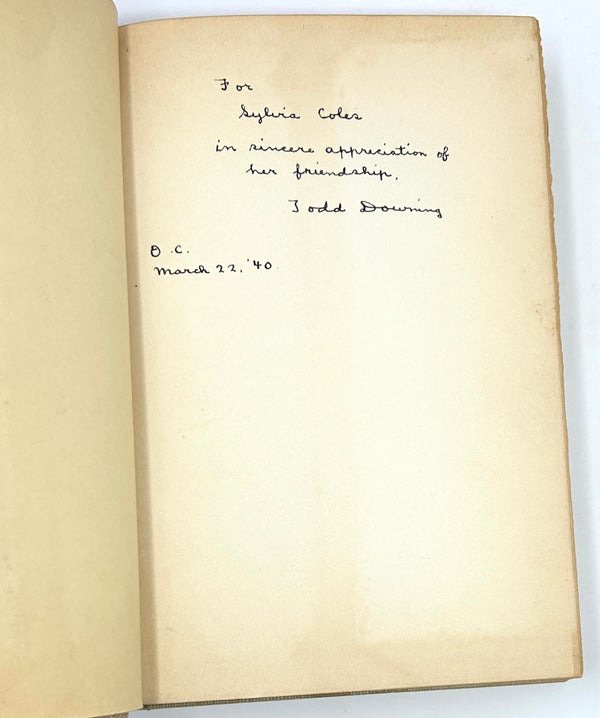 For
Sylvia Coles
in sincere appreciation of
her friendship,
Todd Downing
O.C.
March 22, '40.